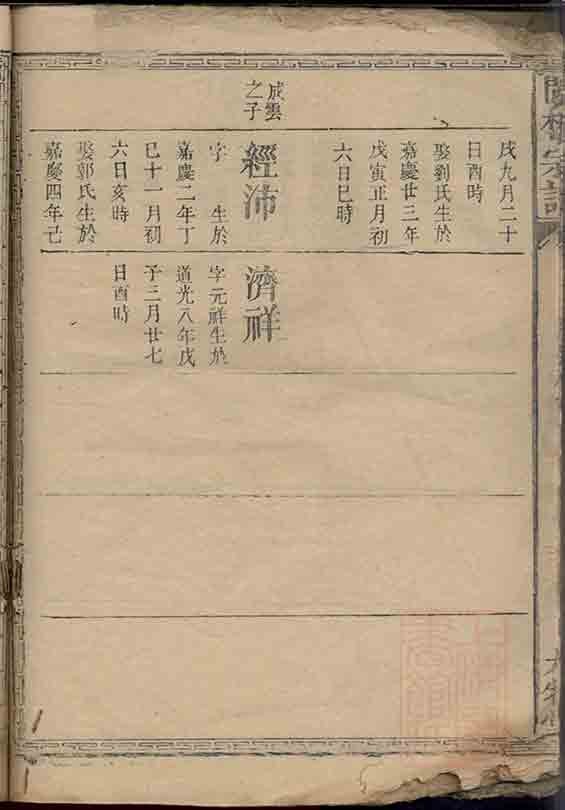 戌九月二十
日酉時
娶劉氏生於
嘉慶廿三年
戊寅正月初
六日巳時
成雲
之子
經沛
字　生於
嘉慶二年丁
巳十一月初
六日亥時
娶郭氏生於
嘉慶四年己
濟祥
字元祥生於
道光八年戊
子三月廿七
日酉時